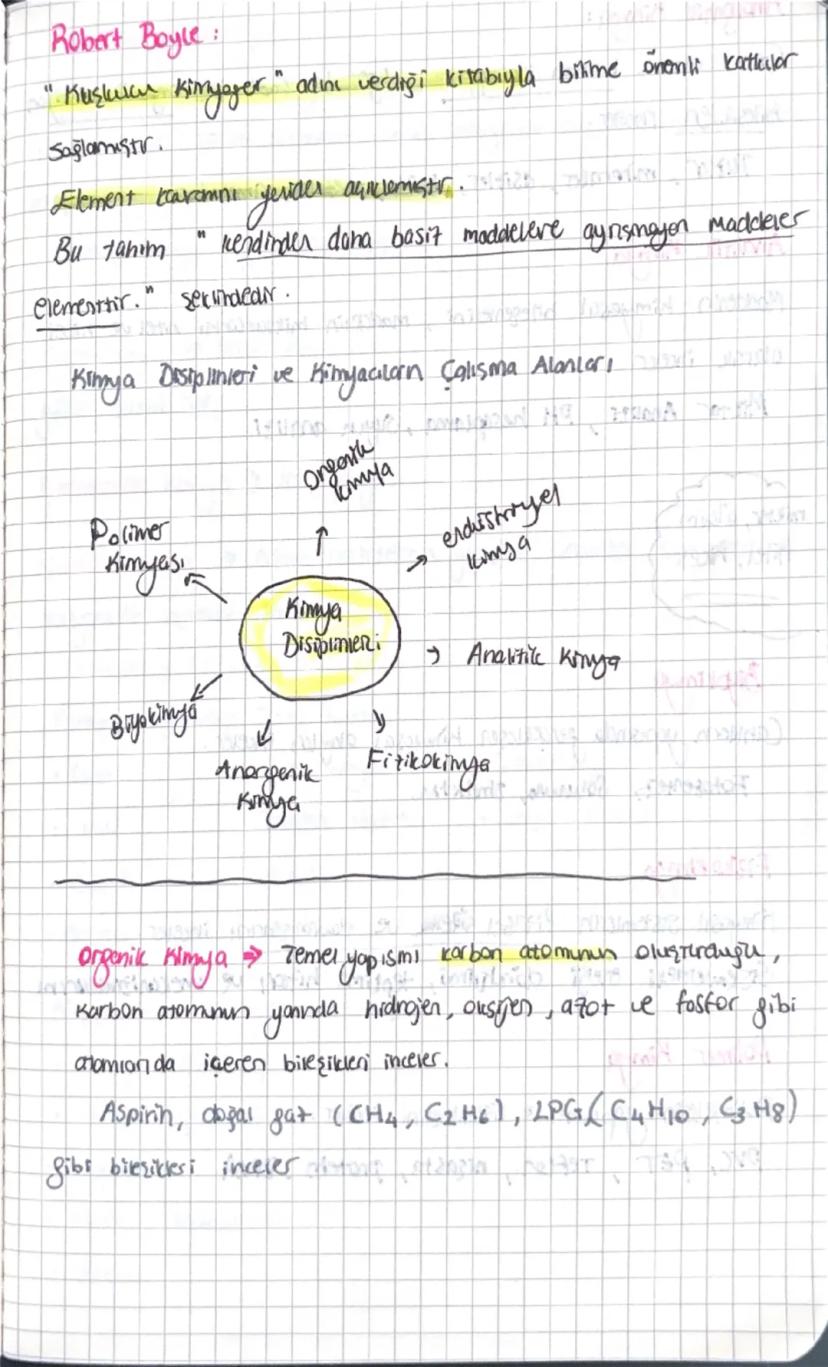 Robert Boyle :
"Kuşkucu Kimyager" adını verdiği kitabıyla bilime önemli katkılar
sağlamıştır.
Element kavramını yeniden açıklamıştır.
Bu tanım "kendinden daha basit maddelere ayrışmayan maddeler
elementtir." şeklindedir.
Kimya Disiplinleri ve Kimyacıların Çalışma Alanları
Organik
kimya
endüstriyel
kimya
Polimer
Kimyası
Kimya
Disiplinleri
Analitik Kimya
Biyokimya
Anorganik
Kimya
Fizikokimya
Organik Kimya ⇒ Temel yapısını karbon atomunun oluşturduğu,
karbon atomunun yanında hidrojen, oksijen, azot ve fosfor gibi
atomları da içeren bileşikleri inceler.
Aspirin, doğal gaz (CH4, C2H6), LPG (C4H10, C3H8)
gibi bileşikleri inceler